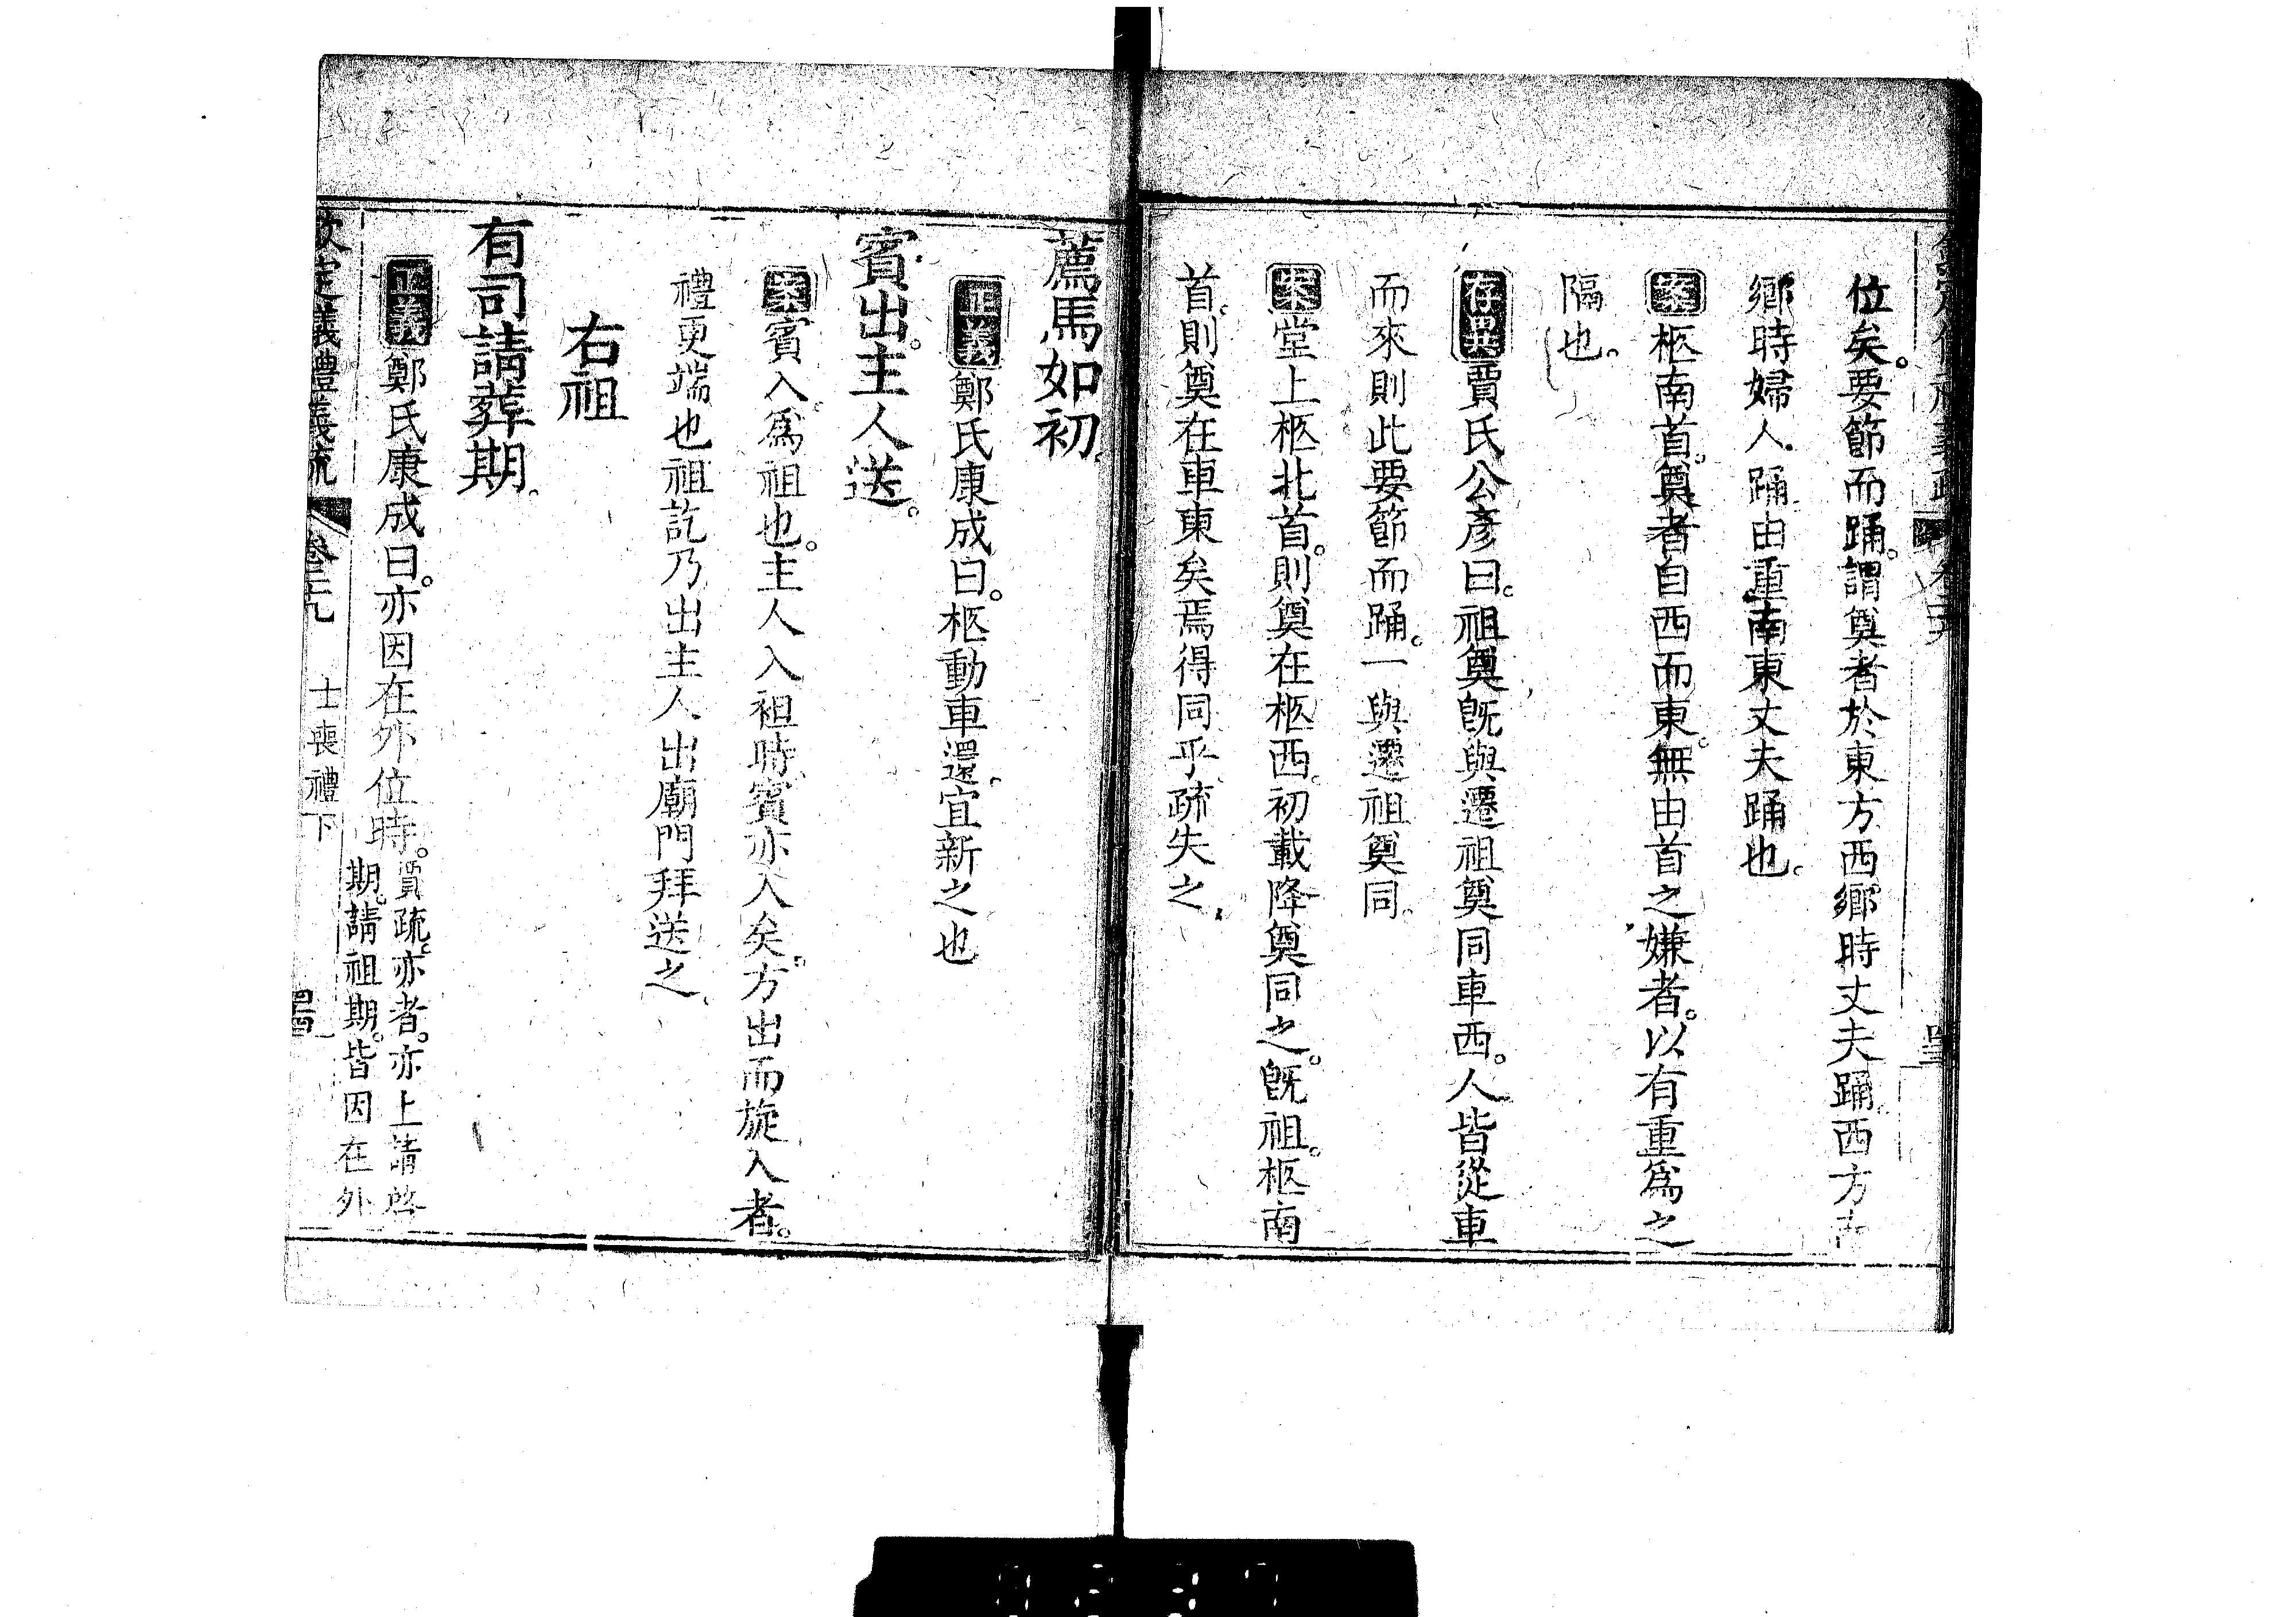 位矣。要節而踊。謂奠者於東方西鄉時丈夫踊西方
鄉時婦人踊由重南東丈夫踊也。
案柩南首。奠者自西而東。無由首之嫌者。以有重爲之
隔也。
存異賈氏公彥曰。祖奠旣與遷祖奠同車西。人皆從車
而來則此要節而踊。一與遷祖奠同。
案堂上柩北首。則奠在柩西。初載降奠同之。旣祖。柩南
首。則奠在車東矣焉得同乎疏失之。
薦馬如初。
正義鄭氏康成曰。柩動車還。宜新之也
賓出。主人送。
案賓入。爲祖也。主人入袒時賓亦入矣。方出而旋入者。
禮更端也祖訖乃出主人出廟門拜送之。
右祖
有司請葬期。
正義鄭氏康成曰。亦因在外位時。賈疏。亦者。亦上請啓
期。請祖期。皆因在外
欽定儀禮義疏 卷二九 士喪禮下 四四